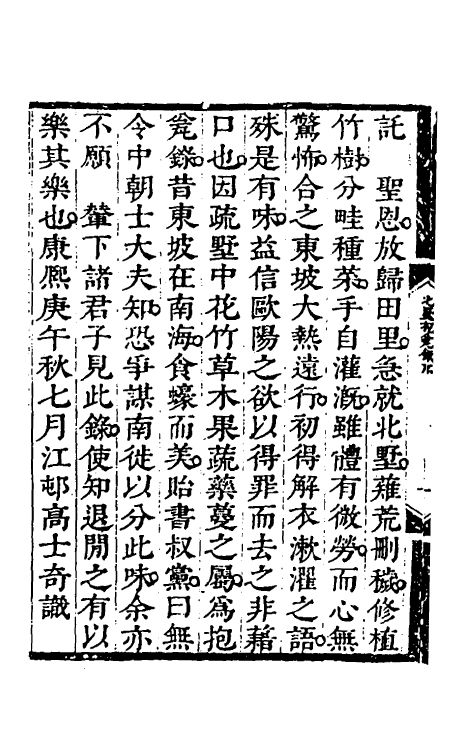 託　聖恩。放歸田里。急就北墅。薙荒刪穢。修植
竹樹。分畦種菜。手自灌漑。雖體有微勞。而心無
驚怖。合之東坡大熱遠行。初得解衣漱濯之語。
殊是有味。益信歐陽之欲以得罪而去之非藉
口也。因疏墅中花竹草木果蔬藥蔓之屬。爲抱
甕錄。昔東坡在南海。食蠔而美。貽書叔黨曰無
令中朝士大夫知。恐爭謀南徙以分此味。余亦
不願　輦下諸君子見此錄。使知退閒之有以
樂其樂也。康熙庚午秋七月江邨高士奇識